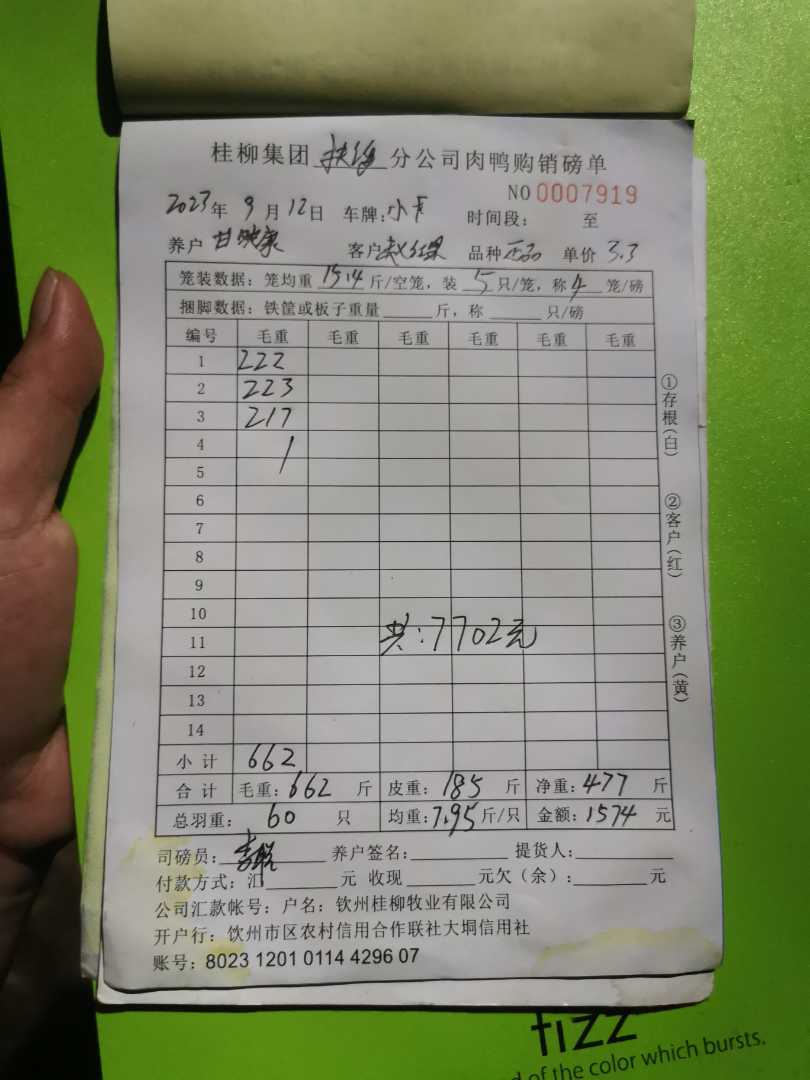 桂柳集团 扶绥 分公司肉鸭购销磅单
NO 0007919
2023年 9月 12日 车牌:小卡 时间段: 至
养户 甘 客户 赵 品种 正品 单价 3.3
笼装数据: 笼均重 15.4 斤/空笼, 装 5 只/笼, 称 4 笼/磅
捆脚数据: 铁筐或板子重量 斤, 称 只/磅
编号 毛重 毛重 毛重 毛重 毛重 毛重
1 222
2 223
3 217
4
5
6
7
8
9
10
11 共:7702元
12
13
14
小计 662
合计 毛重:662 斤 皮重:185 斤 净重:477 斤
总羽重: 60 只 均重:7.95斤/只 金额:1574 元
司磅员: 养户签名: 提货人:
付款方式: 汇 元 收现 元欠(余): 元
公司汇款帐号: 户名: 钦州桂柳牧业有限公司
开户行: 钦州市区农村信用合作联社大垌信用社
账号: 8023 1201 0114 4296 07
①存根(白)
②客户(红)
③养户(黄)
fizz
of the color which bursts.